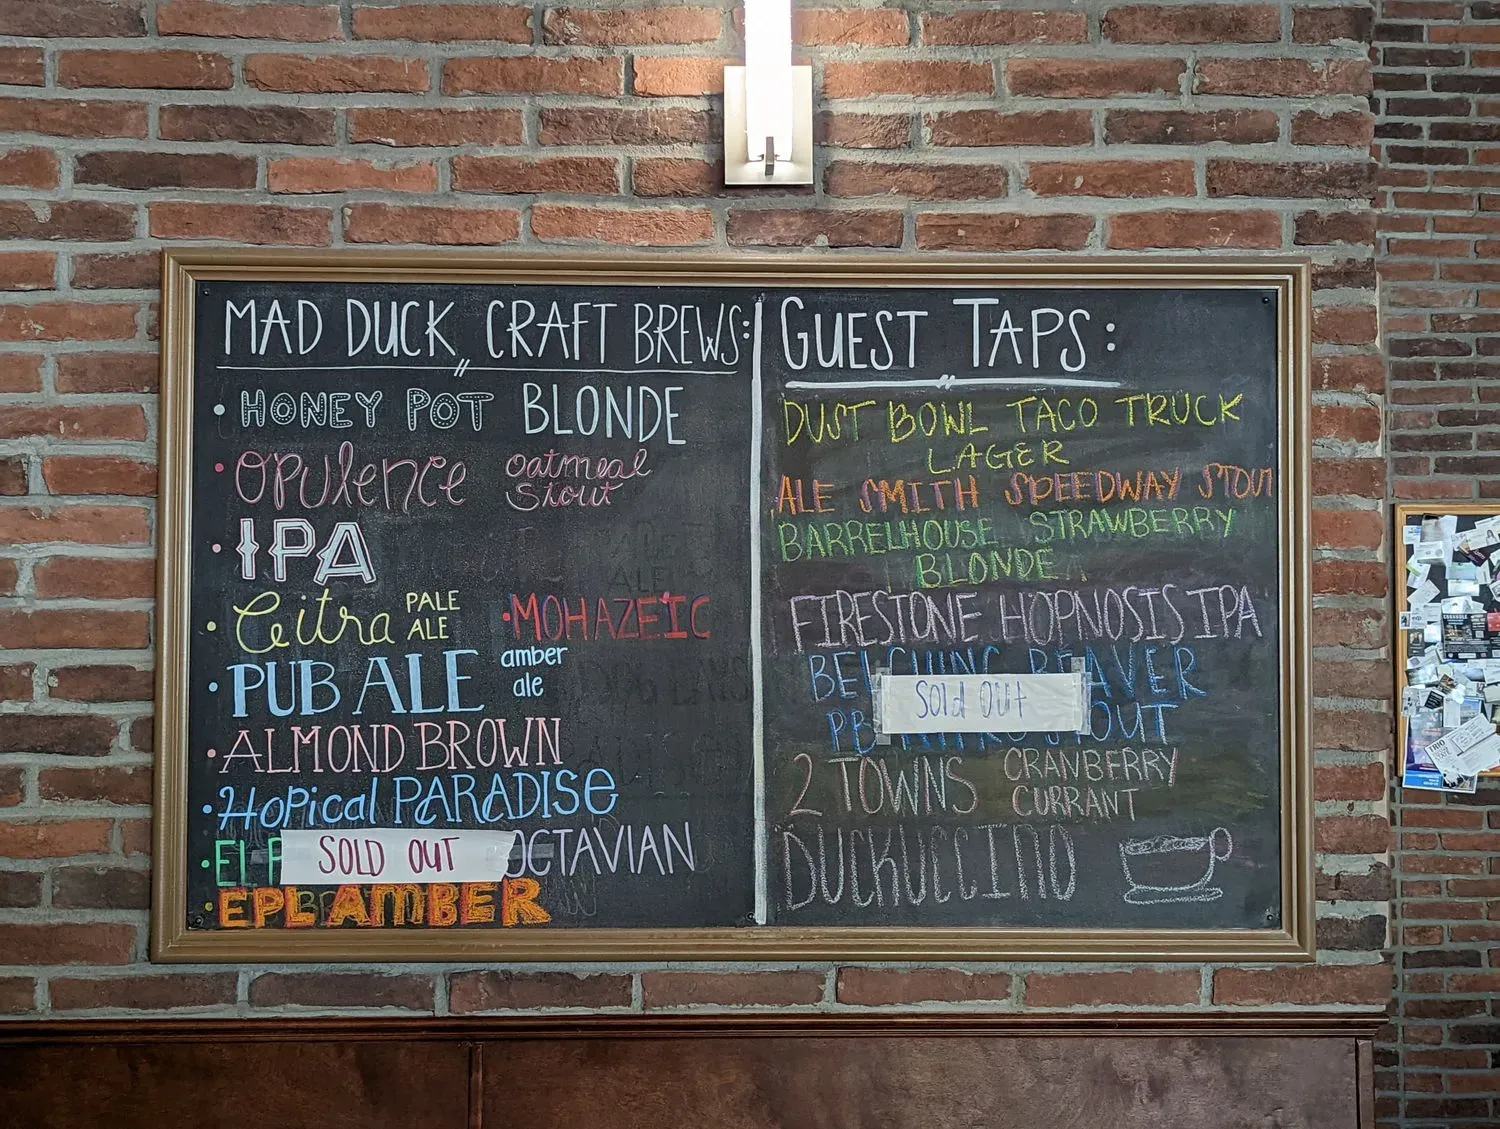 MAD DUCK CRAFT BREWS:
• HONEY POT BLONDE
• Opulence oatmeal stout
• IPA
• Citra PALE ALE
• MOHAZEIC
• PUB ALE amber ale
• ALMOND BROWN
• Hopical PARADISE
• EL P SOLD OUT OCTAVIAN
• EPL AMBER
GUEST TAPS:
DUST BOWL TACO TRUCK
LAGER
ALE SMITH SPEEDWAY STOUT
BARRELHOUSE STRAWBERRY
BLONDE
FIRESTONE HOPNOSIS IPA
BELCHING BEAVER
Sold Out
PB OUT
2 TOWNS CRANBERRY
CURRANT
DUCKUCCINO